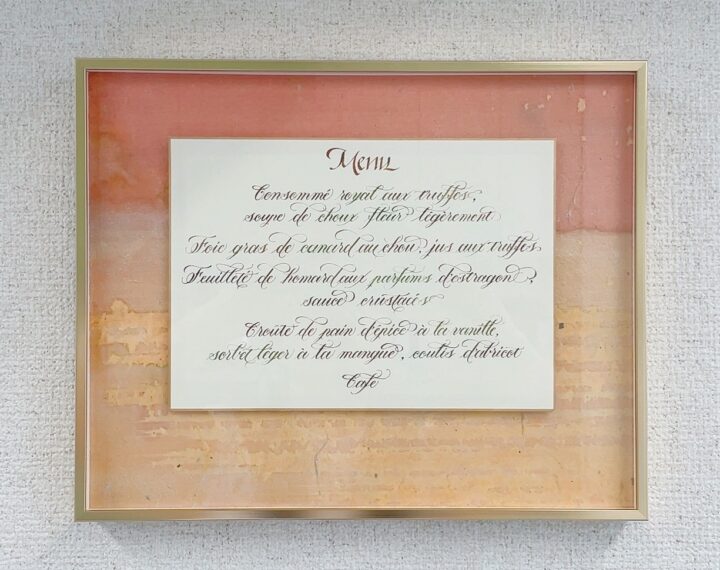 Menu
Consommé royal aux truffes,
soupe de choux fleur légèrement
Foie gras de canard au chou, jus aux truffes
Feuilleté de homard aux parfums d'estragon,
sauce crustacés
Croûte de pain d'épice à la vanille,
sorbet léger à la mangue, coulis d'abricot
Café